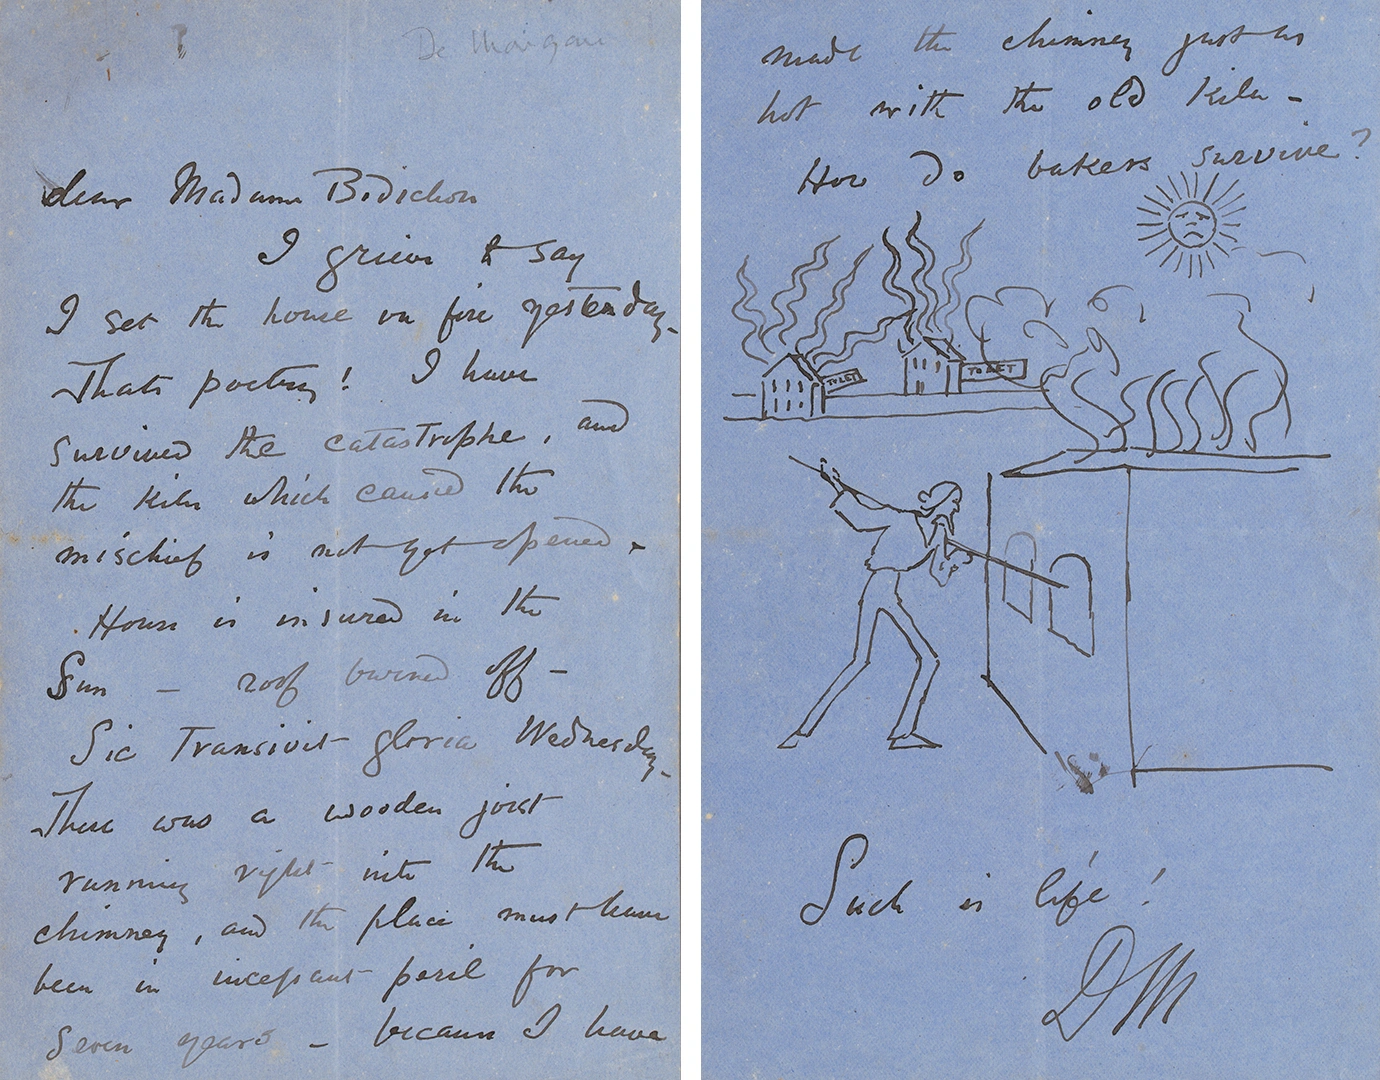 De Morgan
dear Madame Bodichon
I grieve to say
I set the house on fire yesterday.
Thats poetry! I have
survived the catastrophe, and
the kiln which caused the
mischief is not yet opened.
House is insured in the
Sun – roof burned off –
Sic Transivit gloria Wednesday.
There was a wooden joist
running right into the
chimney, and the place must have
been in incessant peril for
seven years – because I have
made the chimney just as
hot with the old kiln –
How do bakers survive?
TO LET
TO LET
Such is life!
DM